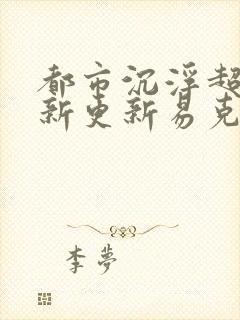 都市沉浮超
新更新易克
李夢